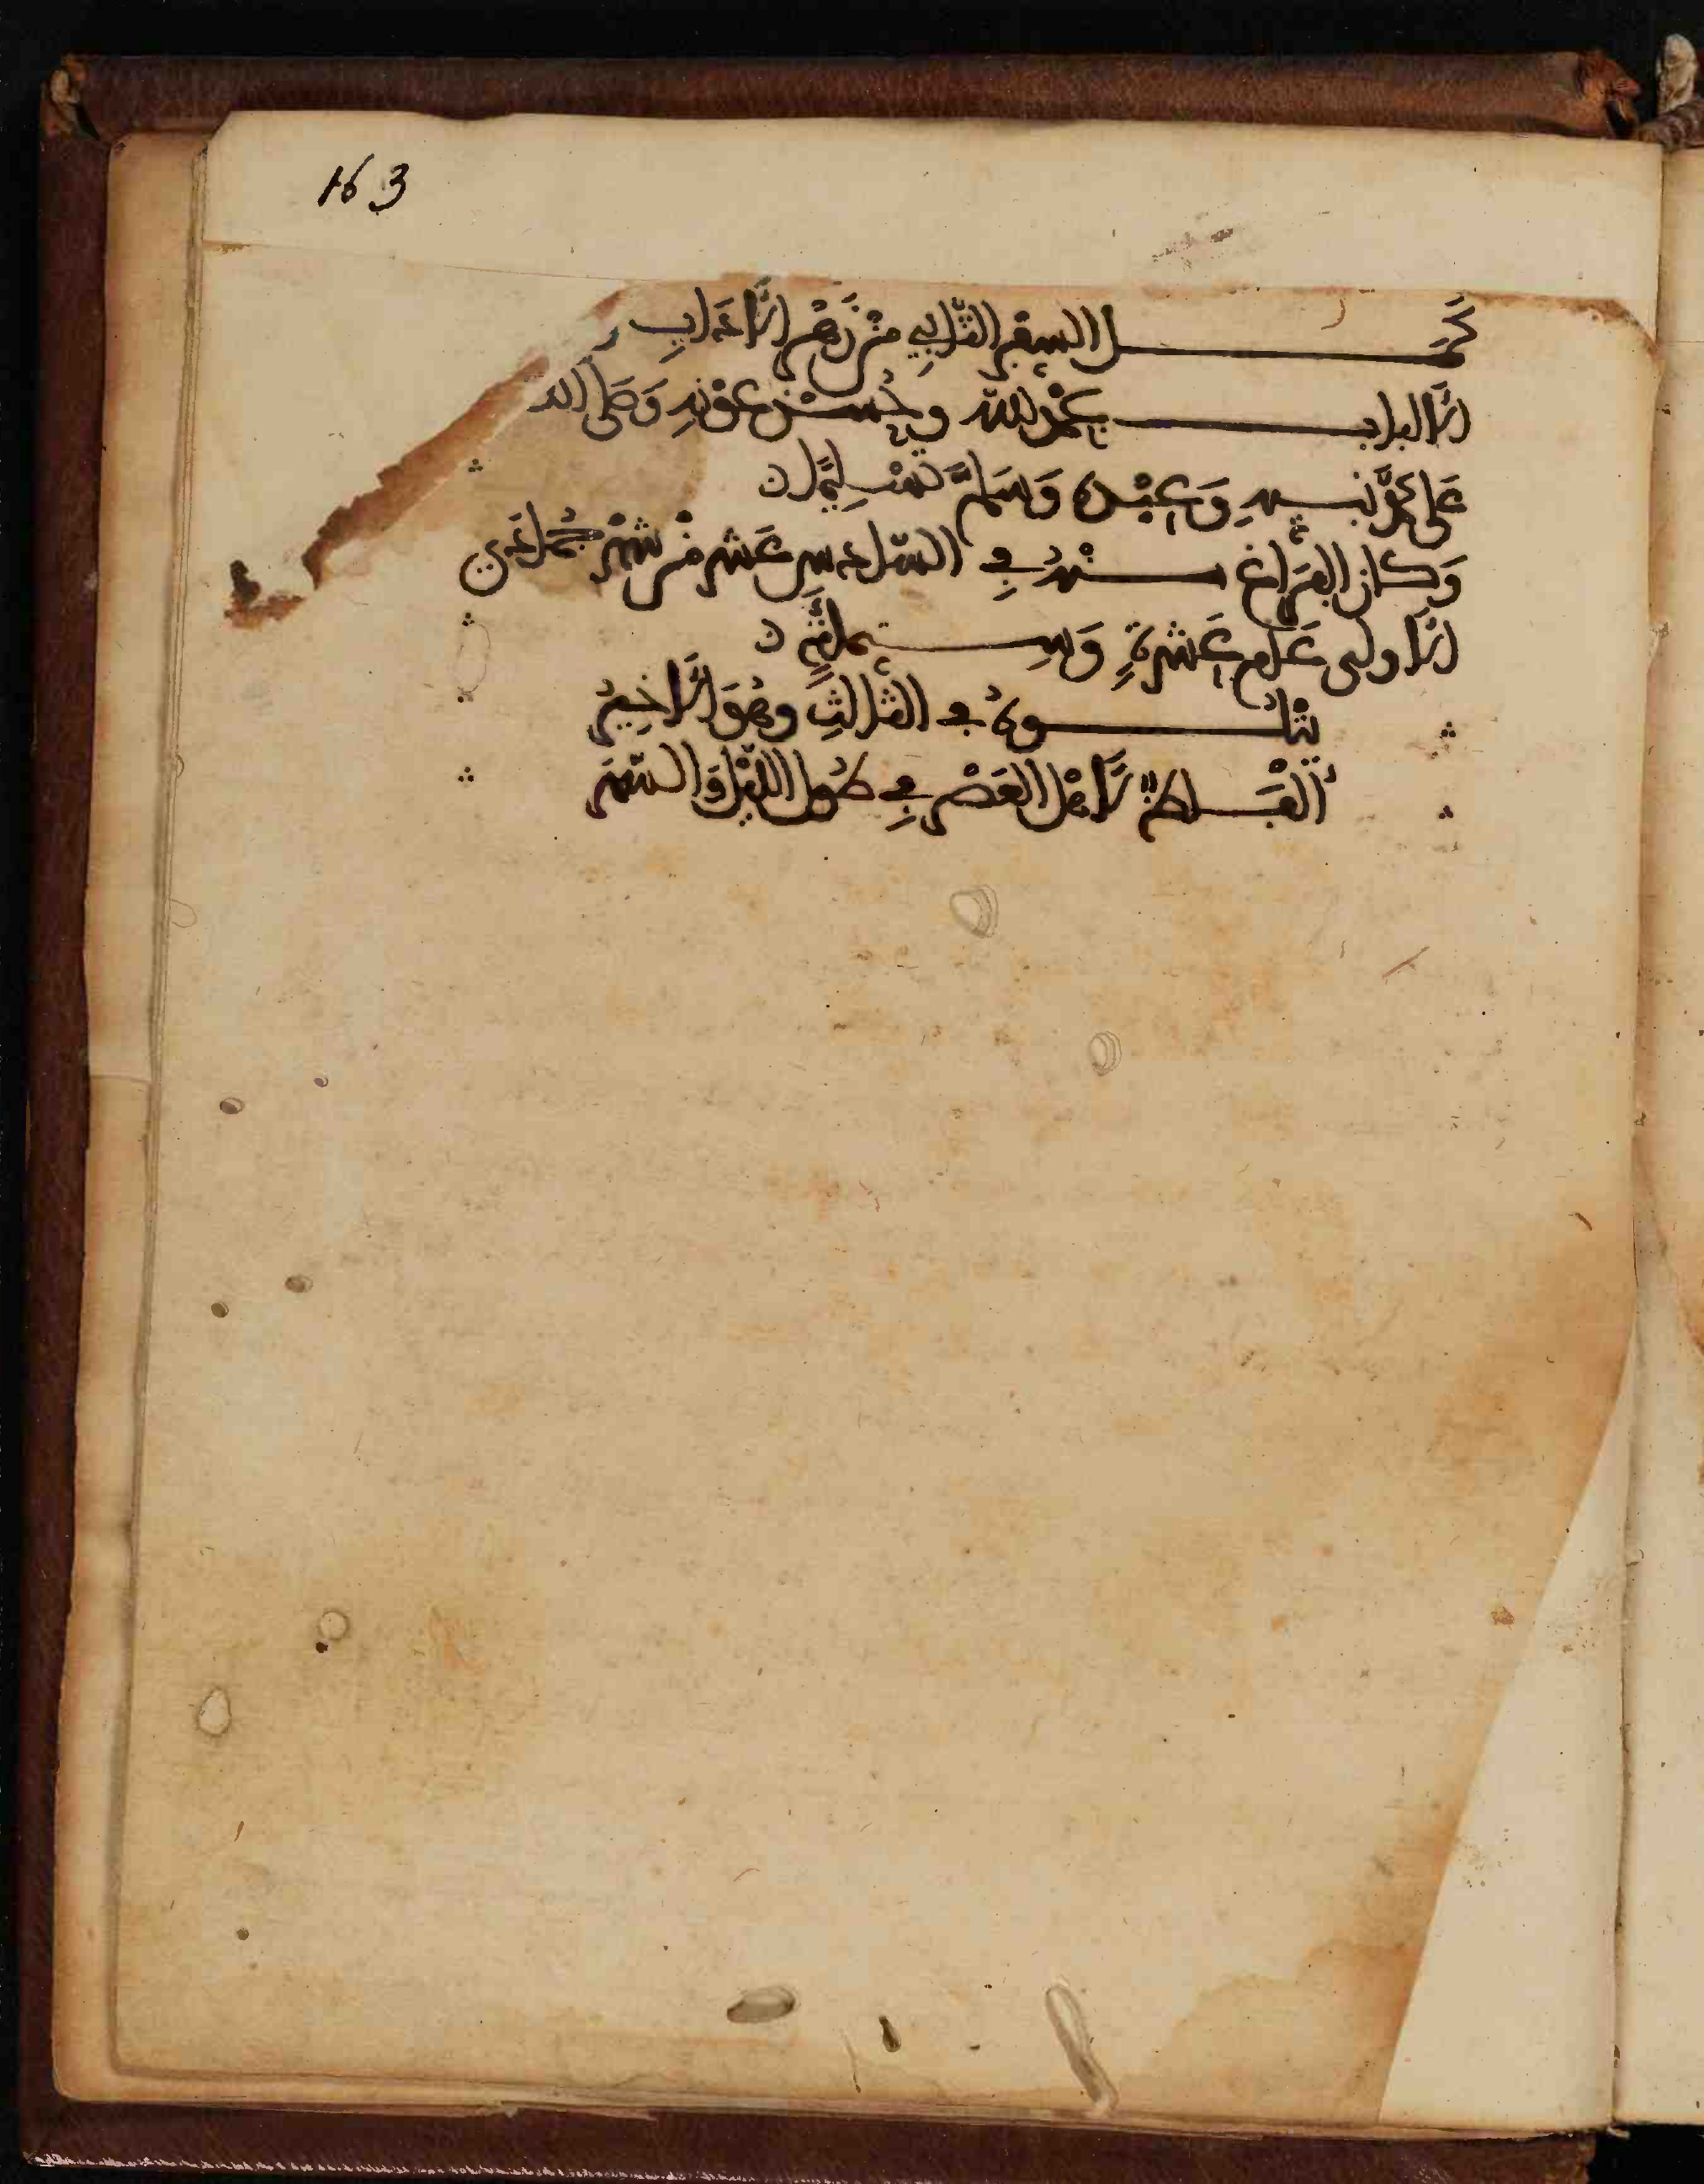 163
كَمَل السفر الثاني من زهر الآداب و
الألباب بحمد الله وحُسْن عَوْنه وَصَلى الله
عَلى محمد نبيه وَعَبْده وَسَلم تَسْليمًا
وَكان الفَراغ منهُ في السادس عشر من شهر جُمادَى
الأولى عَام عَشرة وَستمائة
يَتْلُوهُ في الثالث وهُوَ الأخير
ألفاظ لأهْل العَصْر في طُول الليْل وَالسهَر